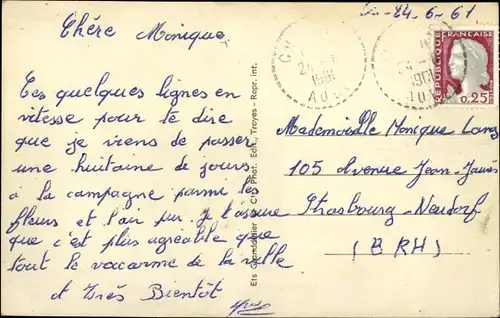 24-6-61
Chére Monique
Ces quelques lignes en
vitesse pour te dire
que je viens de passer
une huitaine de jours
à la campagne parmi les
fleurs et l'air pur. Je t'assure
que c'est plus agréable que
tout le vacarme de la ville
à Très Bientôt
Ets Grandidier Phot. Edit., Troyes - Repr. int.
RÉPUBLIQUE FRANÇAISE
0,25
24
1961
AUBE
Mademoiselle Monique
105 Avenue Jean-Jaurès
Strasbourg-Neudorf
(B RH)